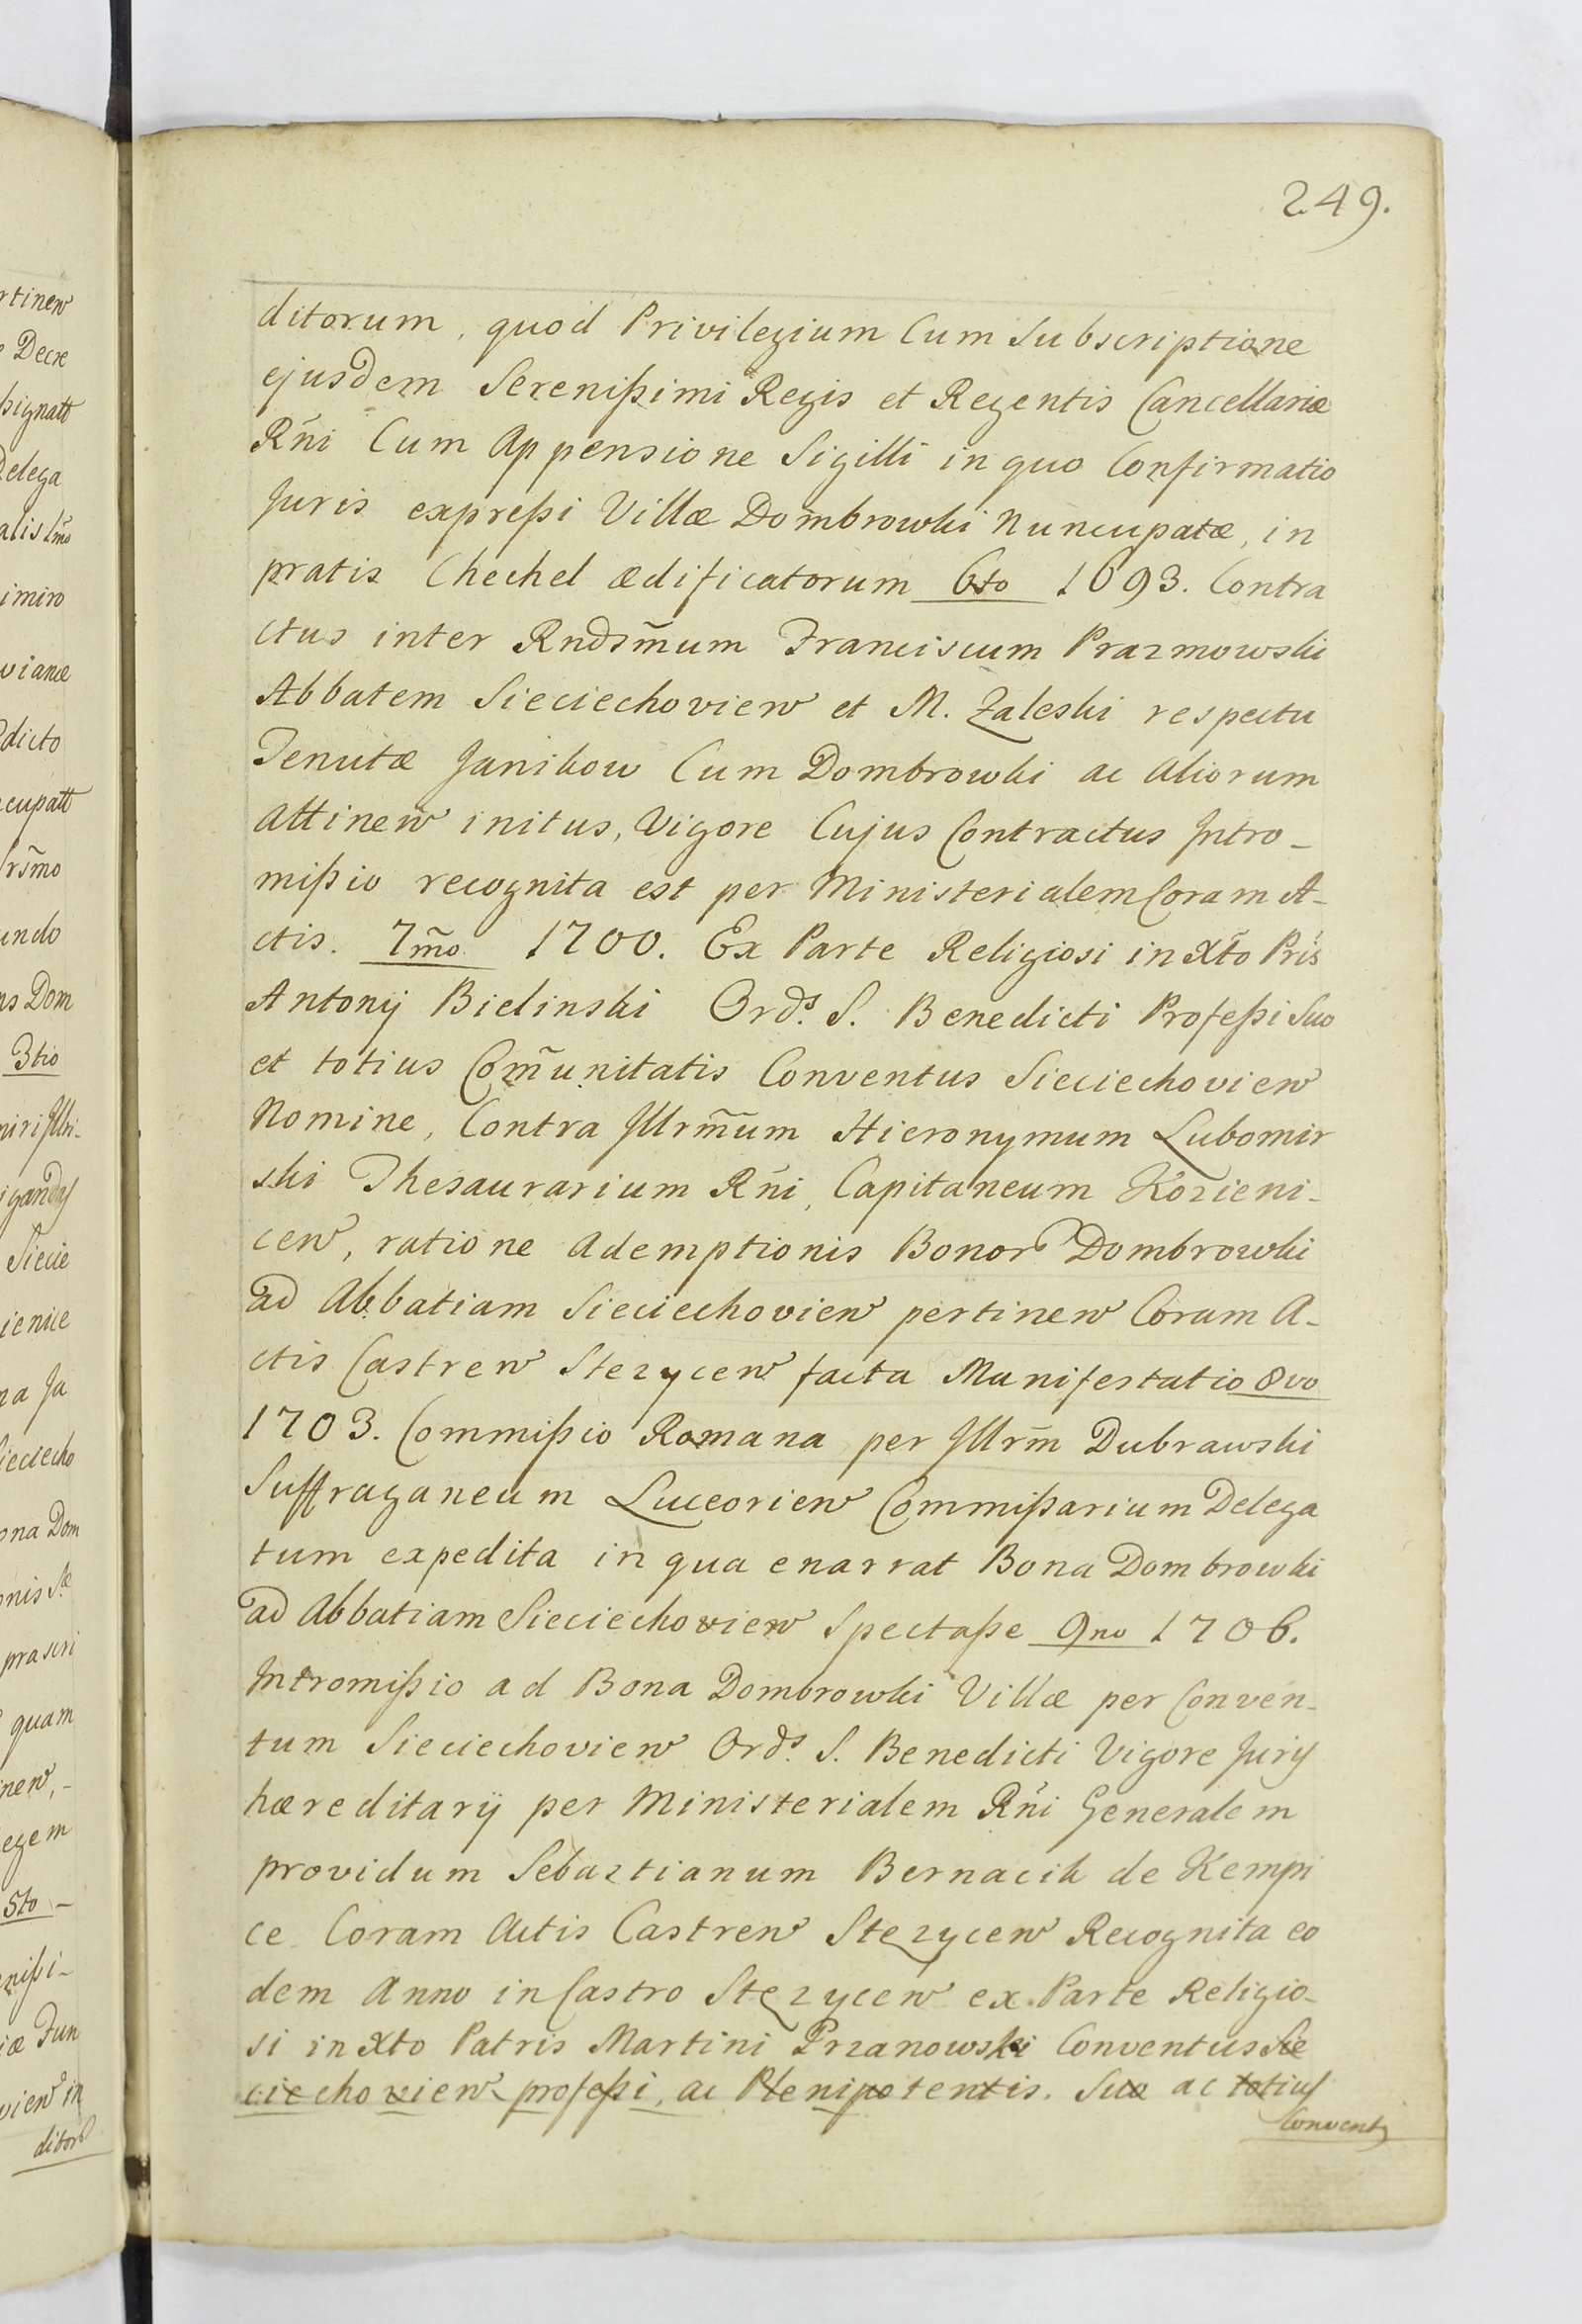 249.
ditorum, quod Privilegium Cum Subscriptione
ejusdem Serenißimi Regis et Regentis Cancellariæ
Rñi Cum Appensione Sigilli in quo Confirmatio
Juris expreßi Villæ Dombrowki Nuncupatæ, in
pratis Chechel ædificatorum 6to 1693. Contra
ctus inter Rndsm̃um Franciscum Prazmowski
Abbatem Sieciechoview et M. Zaleski respectu
Tenutæ Janikow Cum Dombrowki ac Aliorum
Attinew initus, Vigore Cujus Contractus Intro-
mißio recognita est per Ministerialem Coram A-
ctis. 7m̃o 1700. Ex Parte Religiosi in Xt̃o Pris
Antonij Bielinski Ords. S. Benedicti Profeßi Suo
et totius Com̃unitatis Conventus Sieciechoview
Nomine, Contra Illrm̃um Hieronymum Lubomir
ski Thesaurarium Rñi, Capitaneum Kozieni-
cew, ratione Ademptionis Bonor Dombrowki
ad Abbatiam Sieciechoview pertinew Coram A-
ctis Castrew Stezycew facta Manifestatio 8vo
1703. Commißio Romana per Illrm̃ Dubrawski
Suffraganeum Luceoriew Commißarium Delega
tum expedita in qua enarrat Bona Dombrowki
ad Abbatiam Sieciechoview Spectaße 9no 1706.
Intromißio ad Bona Dombrowki Villæ per Conven-
tum Sieciechoview Ords. S. Benedicti Vigore Juris
hæreditarij per Ministerialem Rñi Generalem
providum Sebastianum Bernacik de Kempi
ce Coram Actis Castrew Stezycew Recognita eo
dem Anno in Castro Stezycew ex Parte Religio-
si in Xto Patris Martini Przanowski Conventus Sie
ciechoview profeßi, ac Plenipotentis. Suo ac totius
Convent9
rtinew
Decre
ßignatt
Delega
imiro
vianæ
dicto
cupatt
rsm̃o
undo
ns Dom
3tio
Siecie
ienice
na Ja
Sieciecho
ona Dom
onis
prascri
quam
new, -
egem
5to -
nißi-
iæ Fun
view in
ditor